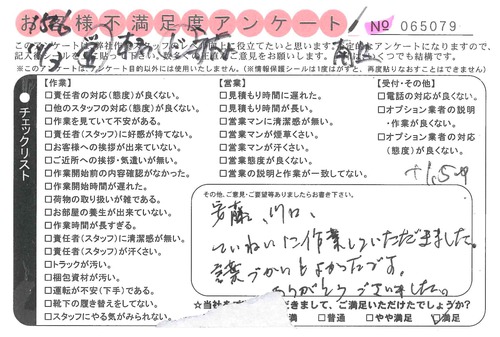 お客様不満足度アンケート
No 065079
このアンケートは弊社作業スタッフのレベル向上に役立てたいと思います。否定的なアンケートになりますので、
記入後シールを貼って下さい。数多くの正直なご意見をお願いします。いくつでも結構です。
※このアンケートは、アンケート目的以外には使用いたしません。(※情報保護シールは1度はがすと、再度貼りなおすことはできません)
チェックリスト
【作業】
□責任者の対応(態度)が良くない。
□他のスタッフの対応(態度)が良くない。
□作業を見ていて不安がある。
□責任者(スタッフ)に好感が持てない。
□お客様への挨拶が出来ていない。
□ご近所への挨拶・気遣いが無い。
□作業開始前の内容確認がなかった。
□作業開始時間が遅れた。
□荷物の取り扱いが雑である。
□お部屋の養生が出来ていない。
□作業時間が長すぎる。
□責任者(スタッフ)に清潔感が無い。
□責任者(スタッフ)が汗くさい。
□トラックが汚い。
□梱包資材が汚い。
□運転が不安(下手)である。
□靴下の履き替えをしてない。
□スタッフにやる気がみられない。
【営業】
□見積もりに遅れた。
□見積もり時間が長い。
□営業マンに清潔感が無い。
□営業マンが煙草くさい。
□営業マンが汗くさい。
□営業態度が良くない。
□営業の説明と作業が一致してない。
【受付・その他】
□電話の対応が良くない。
□オプション業者の説明
・作業が良くない。
□オプション業者の対応
(態度)が良くない。
その他、ご意見・ご要望等ありましたらお書き下さい。
安藤、川口、
ていねいに作業していただきました。
言葉づかいもよかったです。
ありがとうございました。
☆当社を
だきまして、ご満足いただけたでしょうか?
満
□普通
□やや満足
□満足